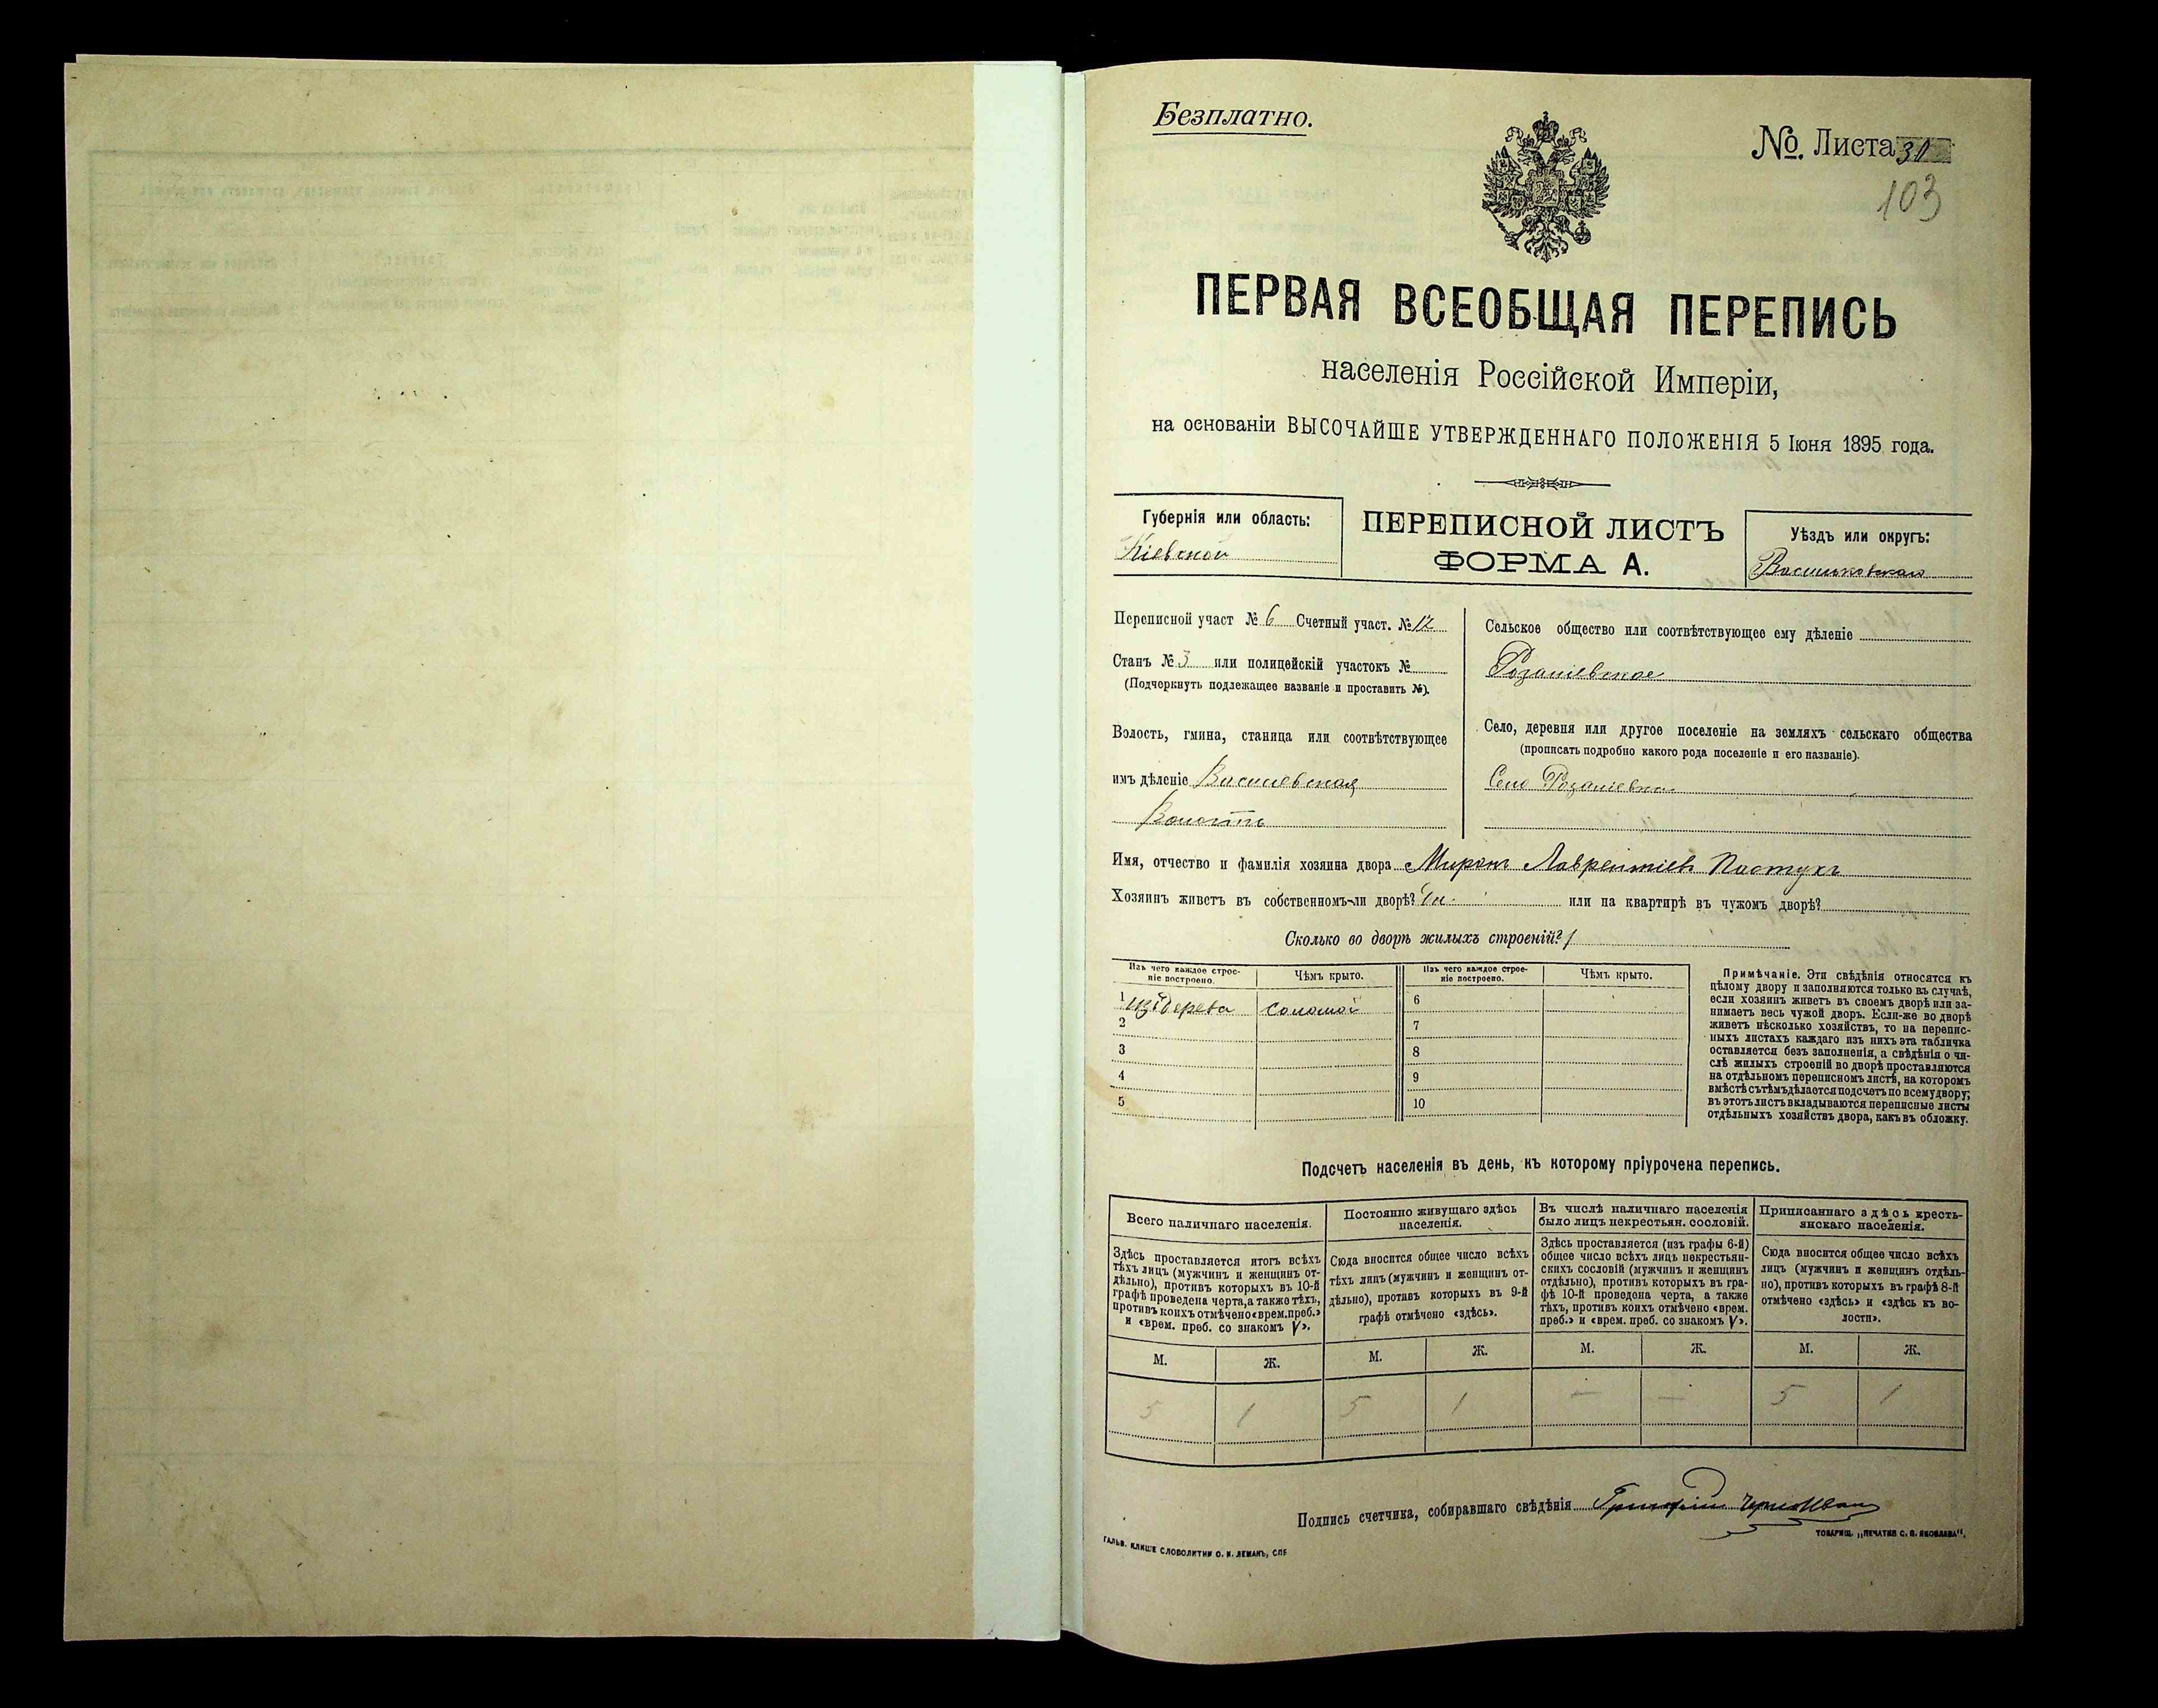 Безплатно.
№. Листа 31
103
ПЕРВАЯ ВСЕОБЩАЯ ПЕРЕПИСЬ
населенія Россійской Имперіи,
на основаніи ВЫСОЧАЙШЕ УТВЕРЖДЕННАГО ПОЛОЖЕНІЯ 5 Іюня 1895 года.
Губернія или область:
Кіевской
ПЕРЕПИСНОЙ ЛИСТЪ
ФОРМА А.
Уѣздъ или округъ:
Васильковскаго
Переписной участ № 6 Счетный участ. № 12
Станъ № 3 или полицейскій участокъ №
(Подчеркнуть подлежащее названіе и проставить №).
Волость, гмина, станица или соотвѣтствующее
имъ дѣленіе
Волость
Сельское общество или соотвѣтствующее ему дѣленіе
Село, деревня или другое поселеніе на земляхъ сельскаго общества
(прописать подробно какого рода поселеніе и его названіе).
Село
Имя, отчество и фамилія хозяина двора Миронъ Лаврентіевъ Пастухъ
Хозяинъ живетъ въ собственномъ-ли дворѣ? или на квартирѣ въ чужомъ дворѣ?
Сколько во дворѣ жилыхъ строеній? 1
Изъ чего каждое строе-
ніе построено.
Чѣмъ крыто.
Изъ чего каждое строе-
ніе построено.
Чѣмъ крыто.
1 изъ дерева соломой 6
2 7
3 8
4 9
5 10
Примѣчаніе. Эти свѣдѣнія относятся къ
цѣлому двору и заполняются только въ случаѣ,
если хозяинъ живетъ въ своемъ дворѣ или за-
нимаетъ весь чужой дворъ. Если-же во дворѣ
живетъ нѣсколько хозяйствъ, то на перепис-
ныхъ листахъ каждаго изъ нихъ эта табличка
оставляется безъ заполненія, а свѣдѣнія о чи-
слѣ жилыхъ строеній во дворѣ проставляются
на отдѣльномъ переписномъ листѣ, на которомъ
вмѣстѣ съ тѣмъ дѣлается подсчетъ по всему двору;
въ этотъ листъ вкладываются переписные листы
отдѣльныхъ хозяйствъ двора, какъ въ обложку.
Подсчетъ населенія въ день, къ которому пріурочена перепись.
Всего наличнаго населенія.
Здѣсь проставляется итогъ всѣхъ
тѣхъ лицъ (мужчинъ и женщинъ от-
дѣльно), противъ которыхъ въ 10-й
графѣ проведена черта, а также тѣхъ,
противъ коихъ отмѣчено «врем. преб.»
и «врем. преб. со знакомъ V».
Постоянно живущаго здѣсь
населенія.
Сюда вносится общее число всѣхъ
тѣхъ лицъ (мужчинъ и женщинъ от-
дѣльно), противъ которыхъ въ 9-й
графѣ отмѣчено «здѣсь».
Въ числѣ наличнаго населенія
было лицъ некрестьян. сословій.
Здѣсь проставляется (изъ графы 6-й)
общее число всѣхъ лицъ некрестьян-
скихъ сословій (мужчинъ и женщинъ
отдѣльно), противъ которыхъ въ гра-
фѣ 10-й проведена черта, а также
тѣхъ, противъ коихъ отмѣчено «врем.
преб.» и «врем. преб. со знакомъ V».
Приписаннаго здѣсь кресть-
янскаго населенія.
Сюда вносится общее число всѣхъ
лицъ (мужчинъ и женщинъ отдѣль-
но), противъ которыхъ въ графѣ 8-й
отмѣчено «здѣсь» и «здѣсь къ во-
лости».
М. Ж. М. Ж. М. Ж. М. Ж.
5 1 5 1 — — 5 1
Подпись счетчика, собиравшаго свѣдѣнія
ГАЛЬВ. КЛИШЕ СЛОВОЛИТНИ О. И. ЛЕМАНЪ, СПБ
ТОВАРИЩ. „ПЕЧАТНЯ С. П. ЯКОВЛЕВА“.